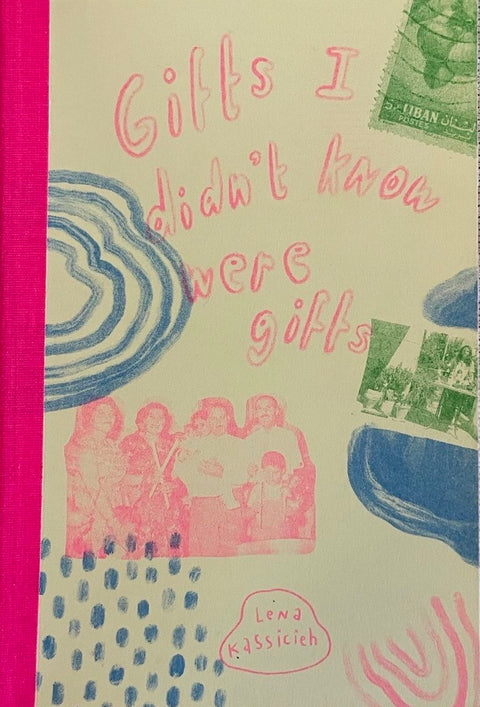 Gifts I
didn't know
were
gifts
لبنان
LIBAN
POSTES
Lena
Kassicieh